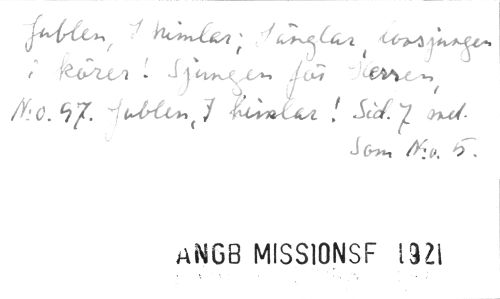 Jublen, I himlar; I änglar, lovsjungen
i körer! Sjungen för Herren,
N:o. 97. Jublen, I himlar! Sid. 7 mel.
Som N:o. 5.
ANGB MISSIONSF 1921